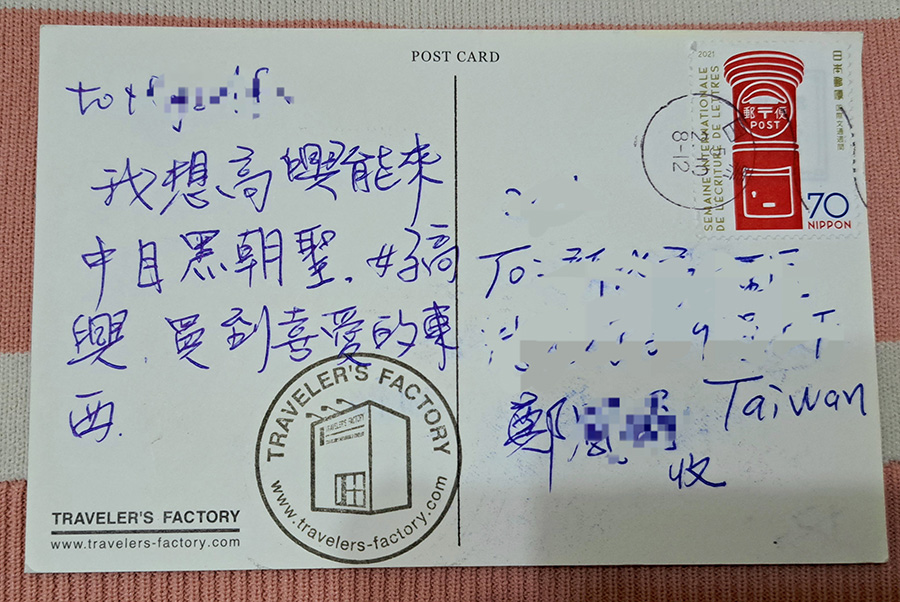 POST CARD
to
我想高興能來
中目黑朝聖.好高
興.買到喜愛的東
西.
TRAVELER'S FACTORY
www.travelers-factory.com
TRAVELER'S FACTORY
TRAVELER'S FACTORY
www.travelers-factory.com
2021
SEMAINE INTERNATIONALE
DE L'ÉCRITURE DE LETTRES
日本郵便
国際文通週間
郵〒便
POST
70
NIPPON
8-12
To:
Taiwan
鄭
收